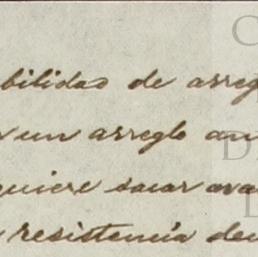 bilidad de arreg
un arreglo am
quiere sacar ava
resistencia de